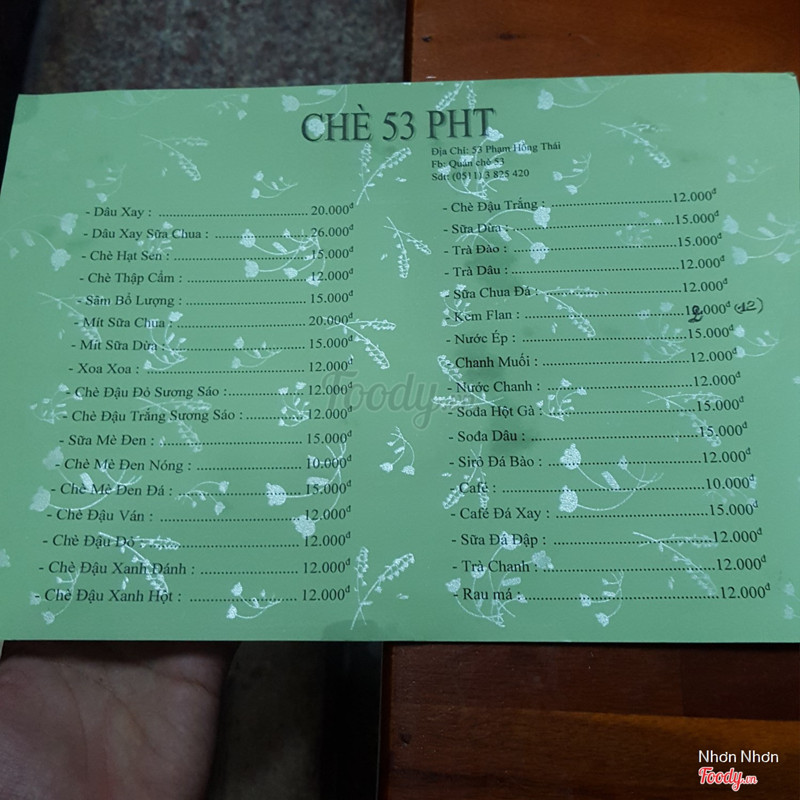 CHÈ 53 PHT
Địa Chỉ: 53 Phạm Hồng Thái
Fb: Quán chè 53
Sdt: (0511) 3 825 420
- Dâu Xay : 20.000đ
- Dâu Xay Sữa Chua : 26.000đ
- Chè Hạt Sen : 15.000đ
- Chè Thập Cẩm : 12.000đ
- Sâm Bổ Lượng : 15.000đ
- Mít Sữa Chua : 20.000đ
- Mít Sữa Dừa : 15.000đ
- Xoa Xoa : 12.000đ
- Chè Đậu Đỏ Sương Sáo : 12.000đ
- Chè Đậu Trắng Sương Sáo : 12.000đ
- Sữa Mè Đen : 15.000đ
- Chè Mè Đen Nóng : 10.000đ
- Chè Mè Đen Đá : 15.000đ
- Chè Đậu Ván : 12.000đ
- Chè Đậu Đỏ 12.000đ
- Chè Đậu Xanh Đánh : 12.000đ
- Chè Đậu Xanh Hột : 12.000đ
- Chè Đậu Trắng : 12.000đ
- Sữa Dừa : 15.000đ
- Trà Đào : 15.000đ
- Trà Dâu : 12.000đ
- Sữa Chua Đá : 12.000đ
- Kem Flan : 12.000đ (12)
- Nước Ép : 15.000đ
- Chanh Muối : 12.000đ
- Nước Chanh : 12.000đ
- Soda Hột Gà : 15.000đ
- Soda Dâu : 15.000đ
- Sirô Đá Bào : 12.000đ
- Café : 10.000đ
- Café Đá Xay : 15.000đ
- Sữa Đá Đập : 12.000đ
- Trà Chanh : 12.000đ
- Rau má : 12.000đ
Foody.vn
Nhơn Nhơn
Foody.vn